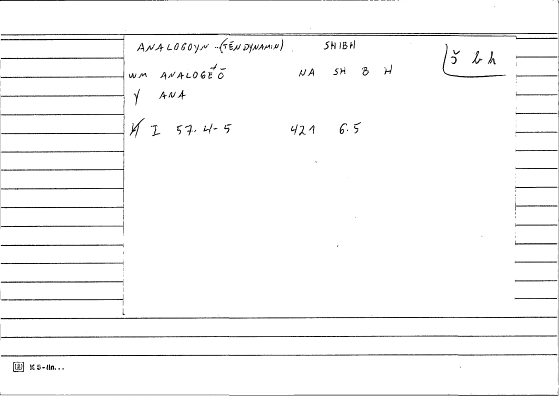 ANALOGOYN ..(TĒN DYNAMIN) SHIBH š b h
WM ANALOGEŌ NA SH B H
Y ANA
I 57.4-5 421 6.5
K5-lin...